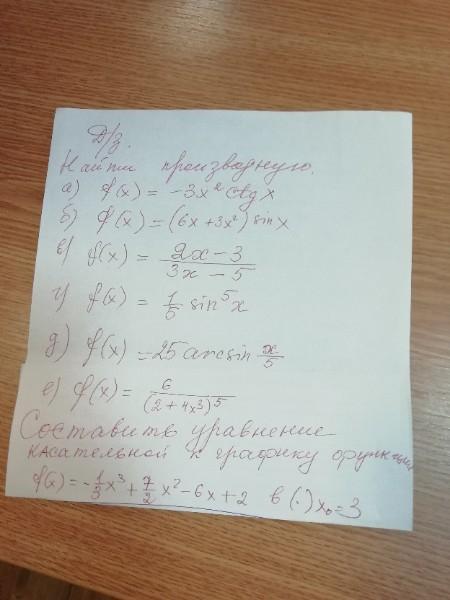 Д/з.
Найти производную.
а) f(x) = -3x² ctg x
б) f(x) = (6x + 3x²) sin x
в) f(x) = \frac{2x - 3}{3x - 5}
г) f(x) = \frac{1}{5} sin⁵ x
д) f(x) = 25 arcsin \frac{x}{5}
е) f(x) = \frac{6}{(2 + 4x³)⁵}
Составить уравнение
касательной к графику функции
f(x) = -\frac{1}{3}x³ + \frac{7}{2}x² - 6x + 2 в (·) x₀ = 3